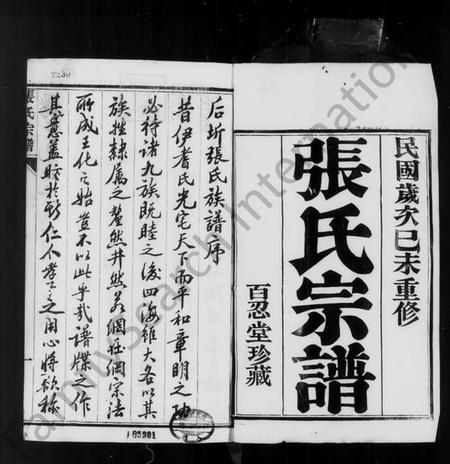 民國歲次己未重修
張氏宗譜
百忍堂珍藏
后圻張氏族譜序
昔伊耆氏光宅天下而平和章明之功
必待諸九族既睦之後四海雖大各以其
族姓隸属之釐然井然若網在綱宗法
所成王化之始豈不以此乎哉譜牒之作
其意蓋
仁不孝
之用心將欲称
張氏宗譜
一
2230
185981
FamilySearch International